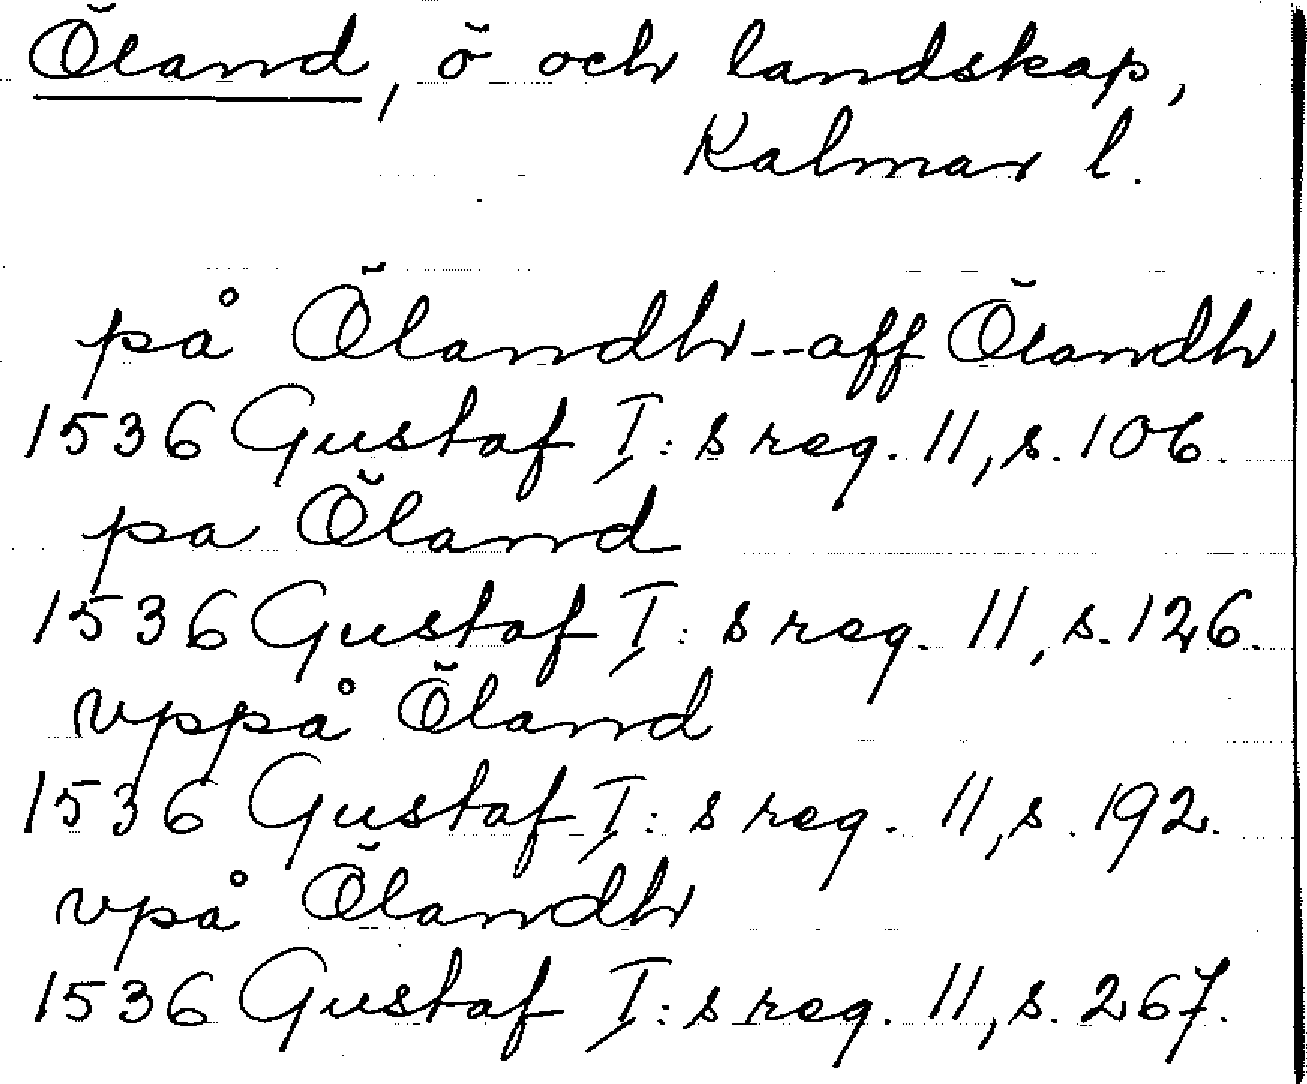 Öland, ö och landskap,
Kalmar l.
på Ölandh--aff Ölandh
1536 Gustaf I:s reg. 11, s. 106.
pa Öland
1536 Gustaf I:s reg. 11, s. 126.
vppå Öland
1536 Gustaf I:s reg. 11, s. 192.
vpå Ölandh
1536 Gustaf I:s reg. 11, s. 267.